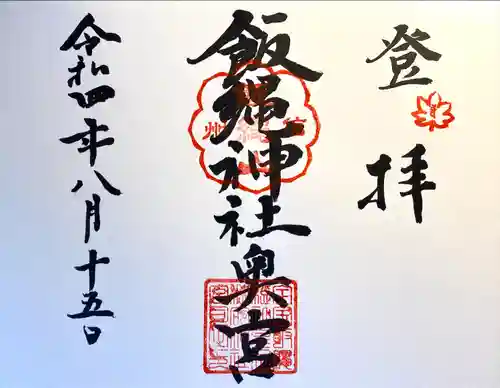 登拝
飯縄神社奥宮
令和四年八月十五日